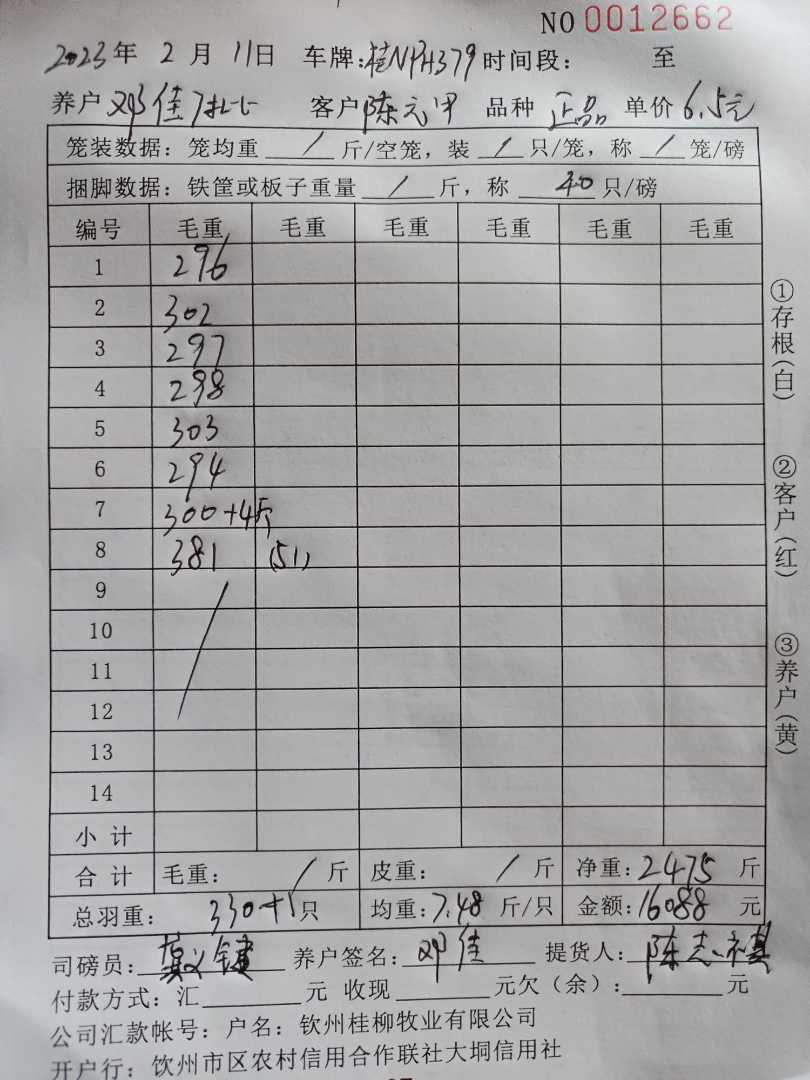 NO 0012662
2023年 2 月 11日 车牌:桂NPH379 时间段: 至
养户 邓佳 客户 陈元甲 品种 正品 单价 6.5元
笼装数据: 笼均重 / 斤/空笼, 装 / 只/笼, 称 / 笼/磅
捆脚数据: 铁筐或板子重量 / 斤, 称 40 只/磅
编号 毛重 毛重 毛重 毛重 毛重 毛重
1 296
2 302
3 297
4 298
5 303
6 294
7 300+4斤
8 381 (51)
9
10
11
12
13
14
小计
合计 毛重: / 斤 皮重: / 斤 净重: 2475 斤
总羽重: 330+1只 均重: 7.48 斤/只 金额: 16088 元
司磅员: 养户签名: 邓佳 提货人: 陈志
付款方式: 汇 元 收现 元欠(余): 元
公司汇款帐号: 户名: 钦州桂柳牧业有限公司
开户行: 钦州市区农村信用合作联社大垌信用社
①存根(白)
②客户(红)
③养户(黄)